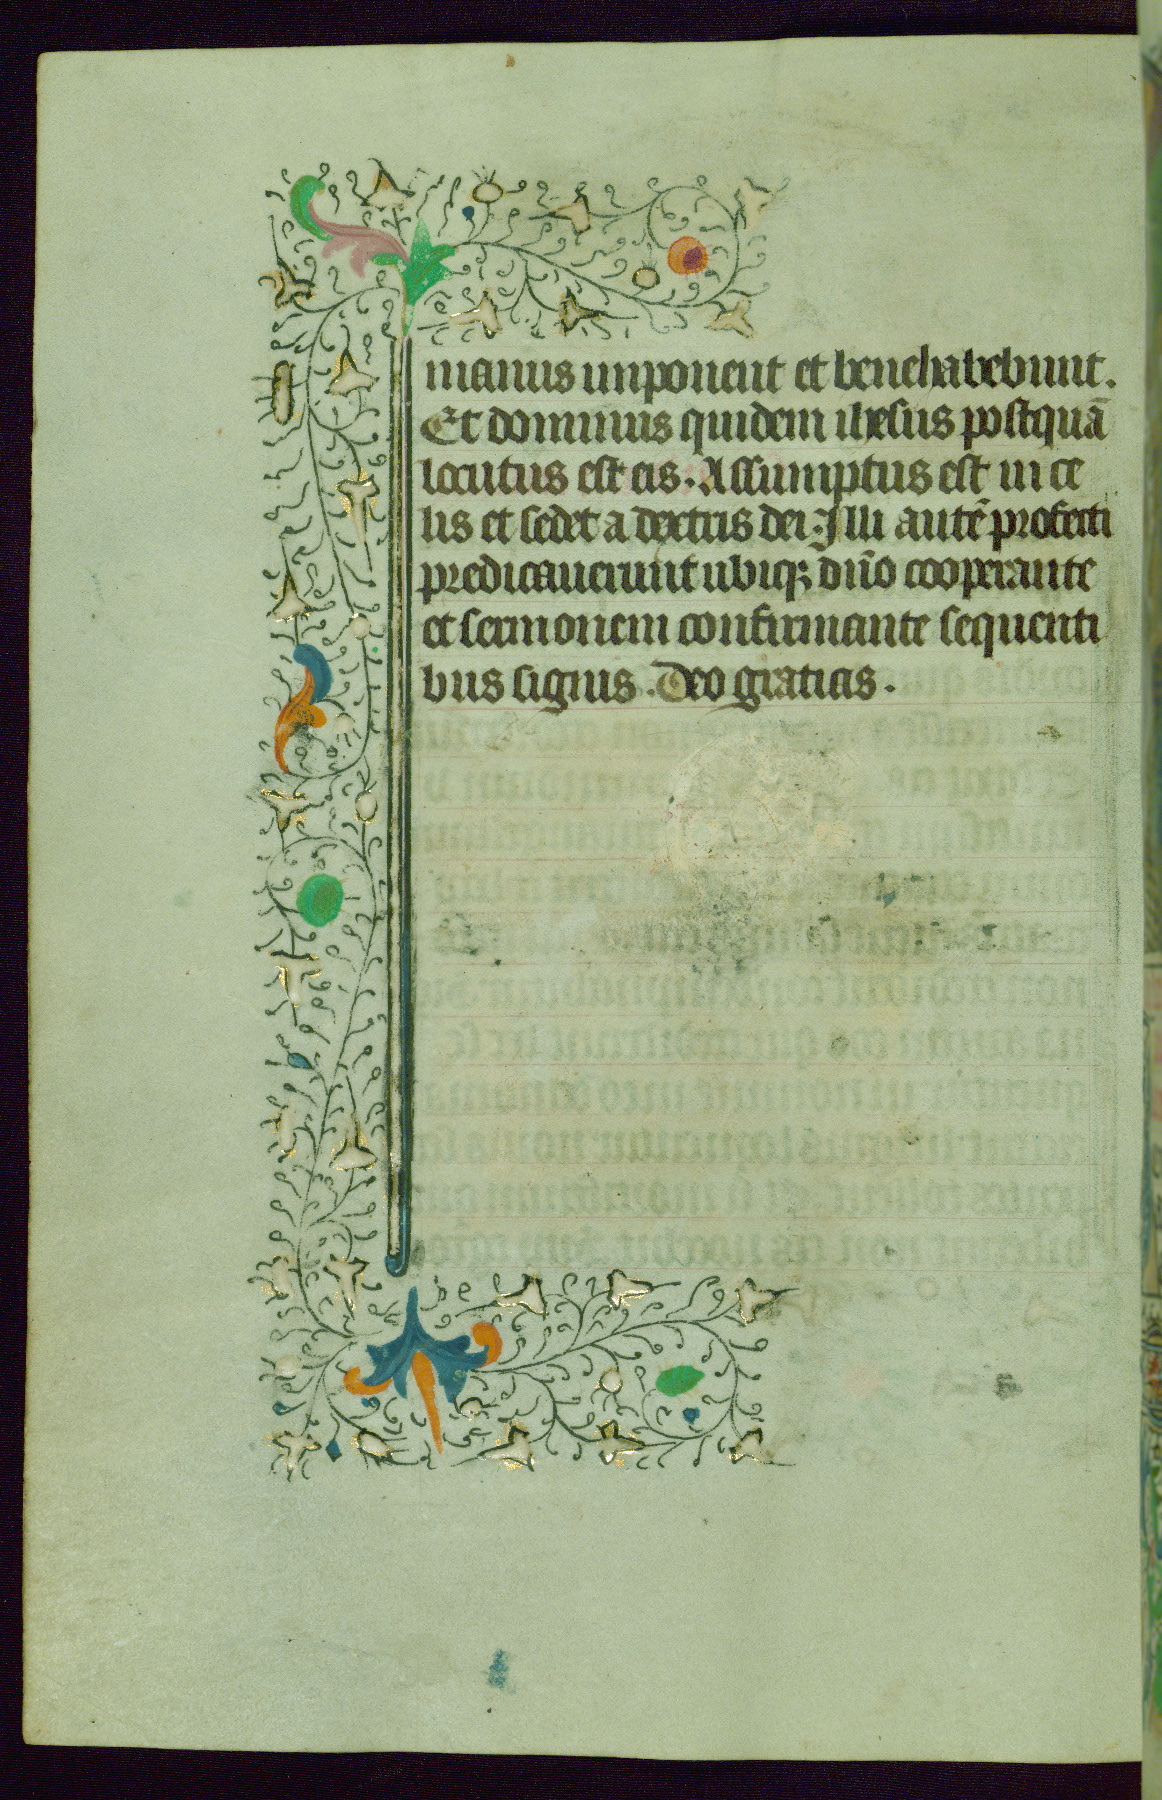 manus imponent et benehabebunt.
Et dominus quidem ihesus postquā
locutus est eis. Assumptus est in ce
lis et sedet a dextris dei. Illi autē profecti
predicauerunt ubiqꝫ dn̄o cooperante
et sermonem confirmante sequenti
bus signis. Deo gratias.